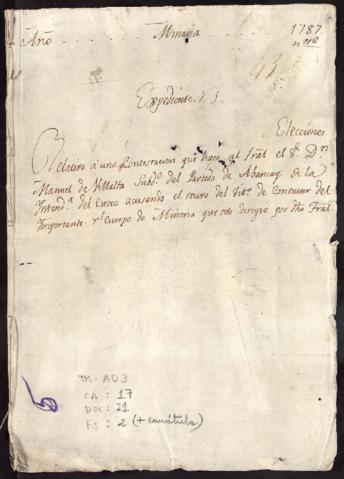 Año . . . . . . Mineria . . . . . . 1787
nº 918
Expediente N. 1.
Elecciones
Relativo á una Contestacion que hace al Tral. el Sr. Dn.
Manuel de Villalta Subdo. del Partido de Abancay de la
Intenda. del Cuzco acusando el recivo del Tito. de Consultor del
Importante rl. Cuerpo de Mineria que se le dirigio por dho Tral.
TM-AD3
CA : 17
DOC : 21
FS : 2 (+ carátula)